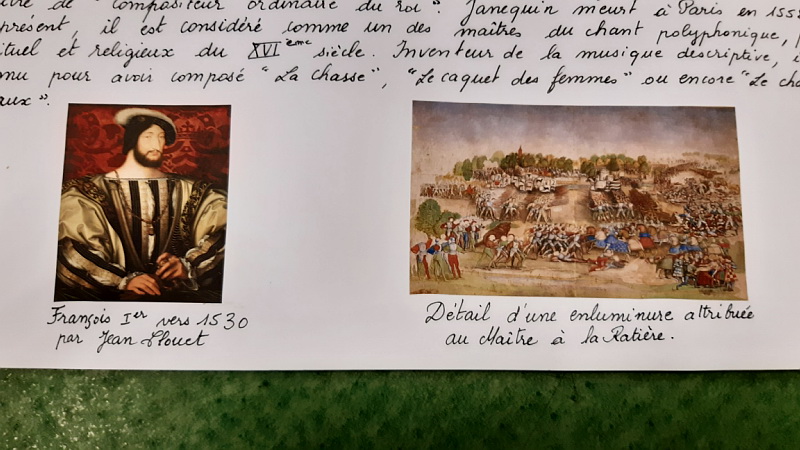 de "compositeur ordinaire du roi". Janequin meurt à Paris en 155
présent, il est considéré comme un des maîtres du chant polyphonique,
ituel et religieux du XVI ème siècle. Inventeur de la musique descriptive, i
nu pour avoir composé "La chasse", "Le caquet des femmes" ou encore "Le cha
aux".
François Ier vers 1530
par Jean Clouet
Détail d'une enluminure attribuée
au Maître à la Ratière.